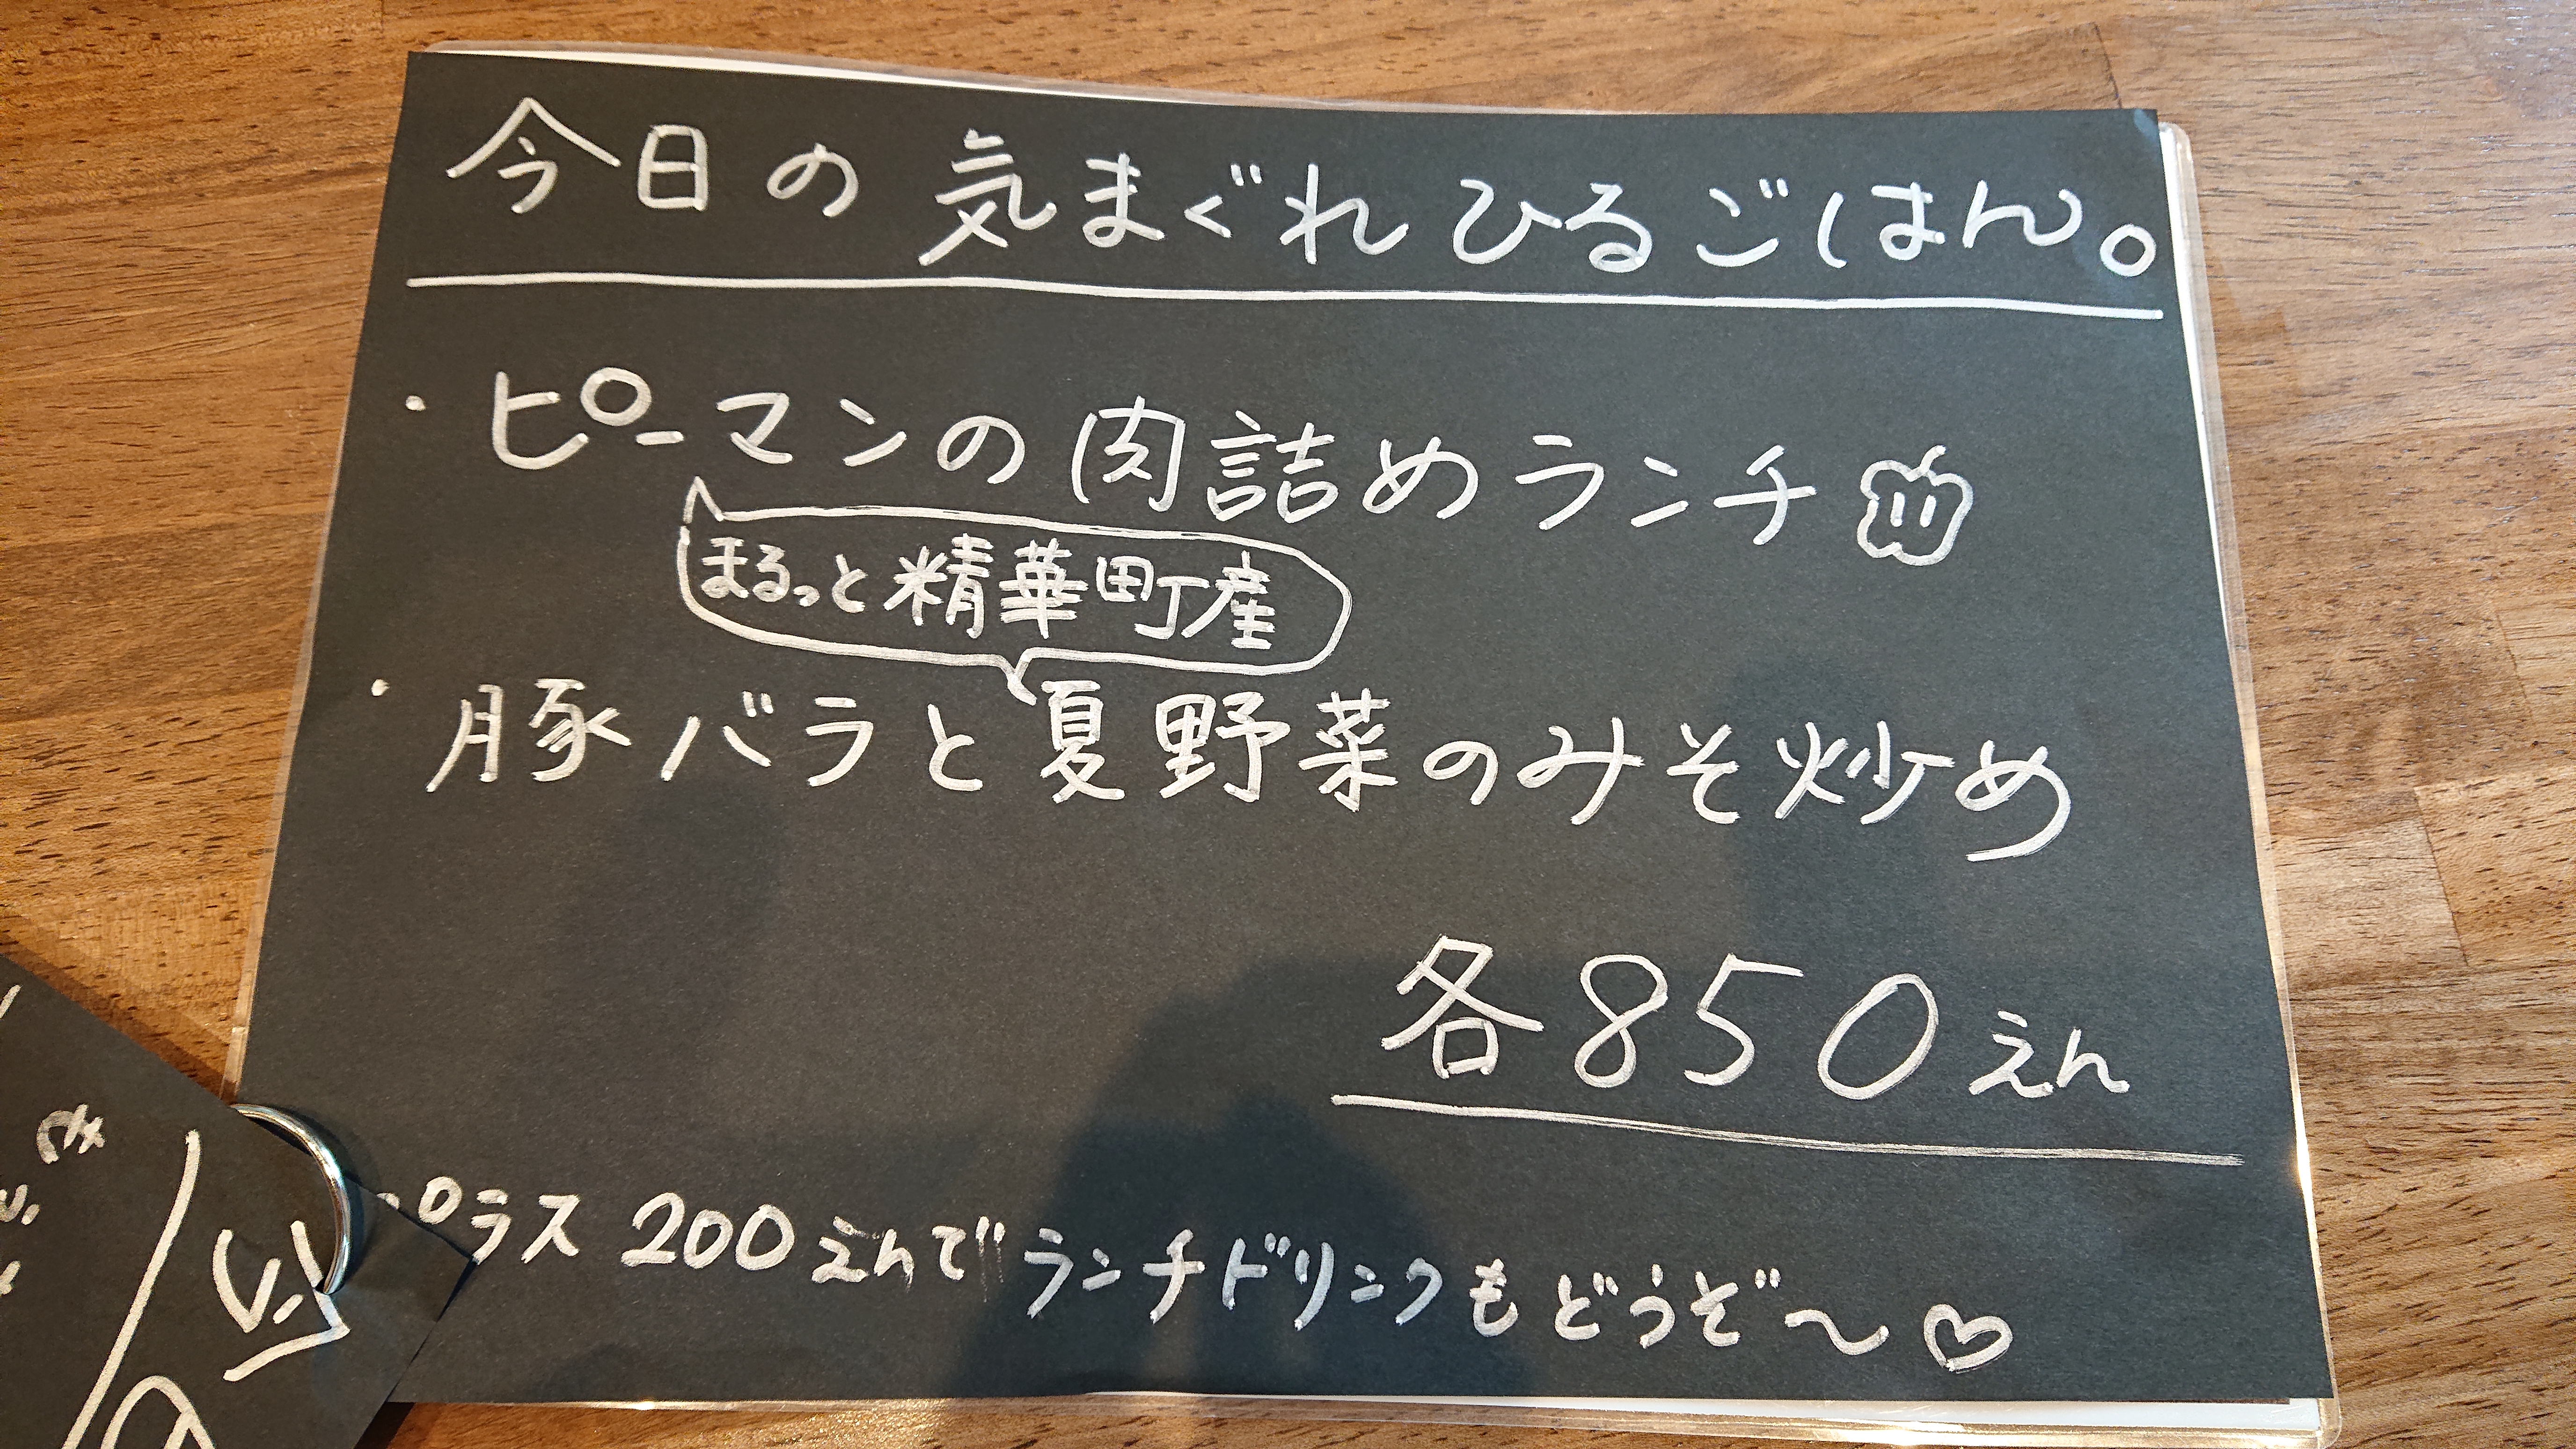 今日の気まぐれひるごはん。
・ピーマンの肉詰めランチ
まるっと精華町産
・豚バラと夏野菜のみそ炒め
各850えん
・プラス200えんでランチドリンクもどうぞ〜♡